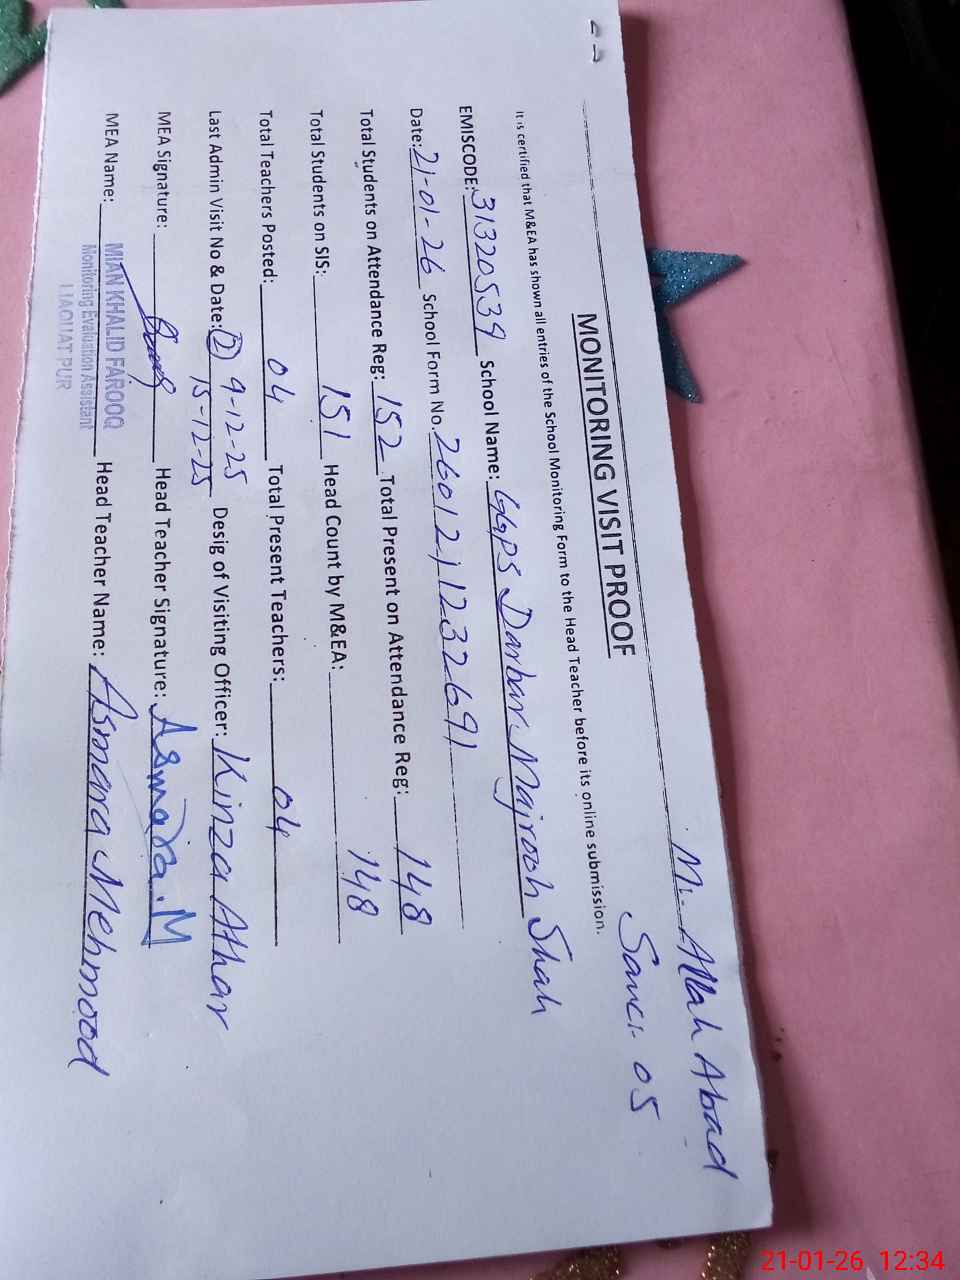 M:- Allah Abad
Sanc:- 05
MONITORING VISIT PROOF
It is certified that M&EA has shown all entries of the School Monitoring Form to the Head Teacher before its online submission.
EMISCODE: 31320539 School Name: GGPS Darbar Majrooh Shah
Date: 21-01-26 School Form No. 260121123269 1
Total Students on Attendance Reg: 152 Total Present on Attendance Reg: 148
Total Students on SIS: 151 Head Count by M&EA: 148
Total Teachers Posted: 04 Total Present Teachers: 04
Last Admin Visit No & Date: (2) 9-12-25 Desig of Visiting Officer: Kinza Athar
15-12-25
MEA Signature: Head Teacher Signature: Asmara.M
MEA Name: MIAN KHALID FAROOQ Head Teacher Name: Asmara Mehmood
Monitoring Evaluation Assistant
LIAQUAT PUR
21-01-26 12:34